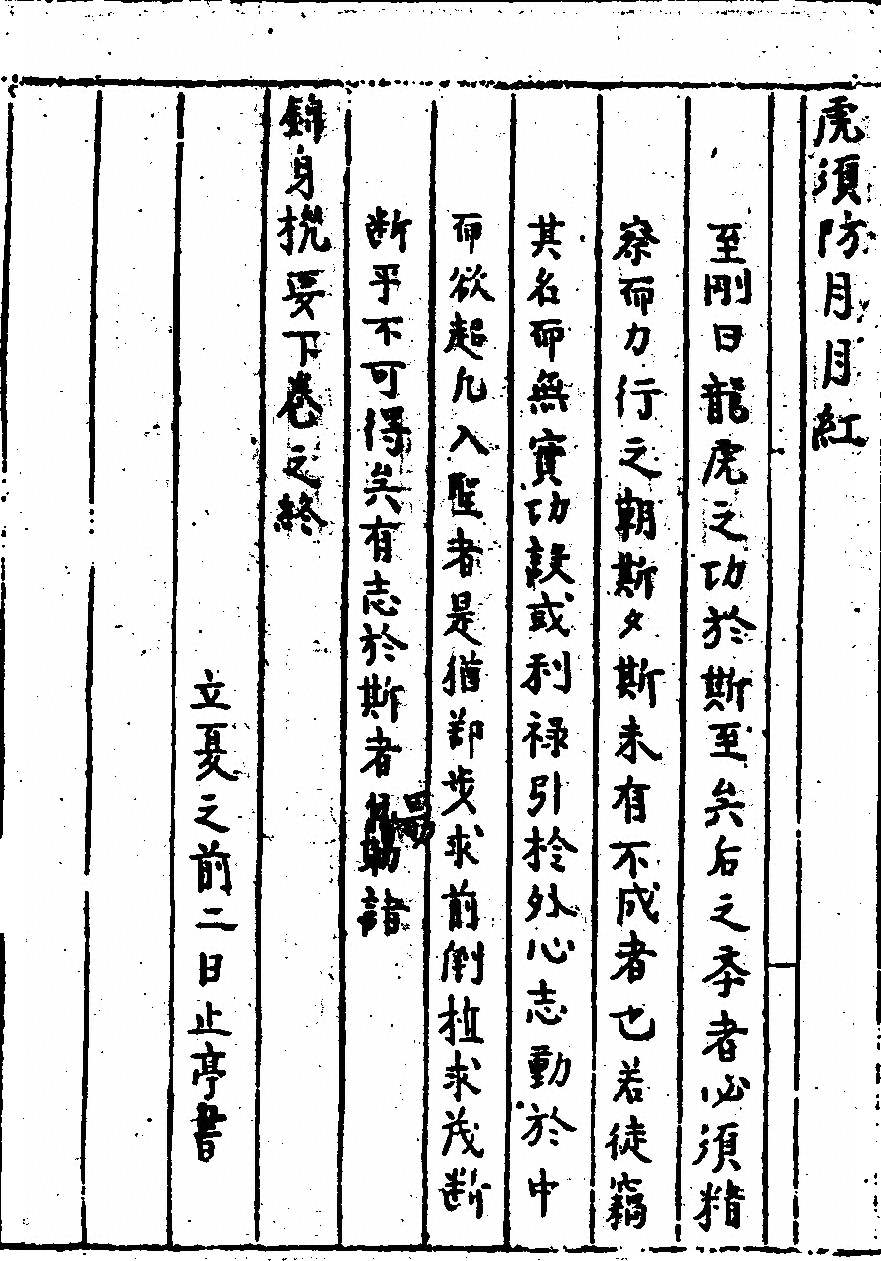 虎須防月月紅
至剛曰龍虎之功於斯至矣后之奉者必須精
察而力行之朝斯夕斯未有不成者也若徒竊
其名而無實功設或利祿引拎外心志動於中
而欲超凡入聖者是猶却步求前倒植求茂断
断乎不可得矣有志於斯者勗諸
錦身捖要下卷之終
立夏之前二日止亭書